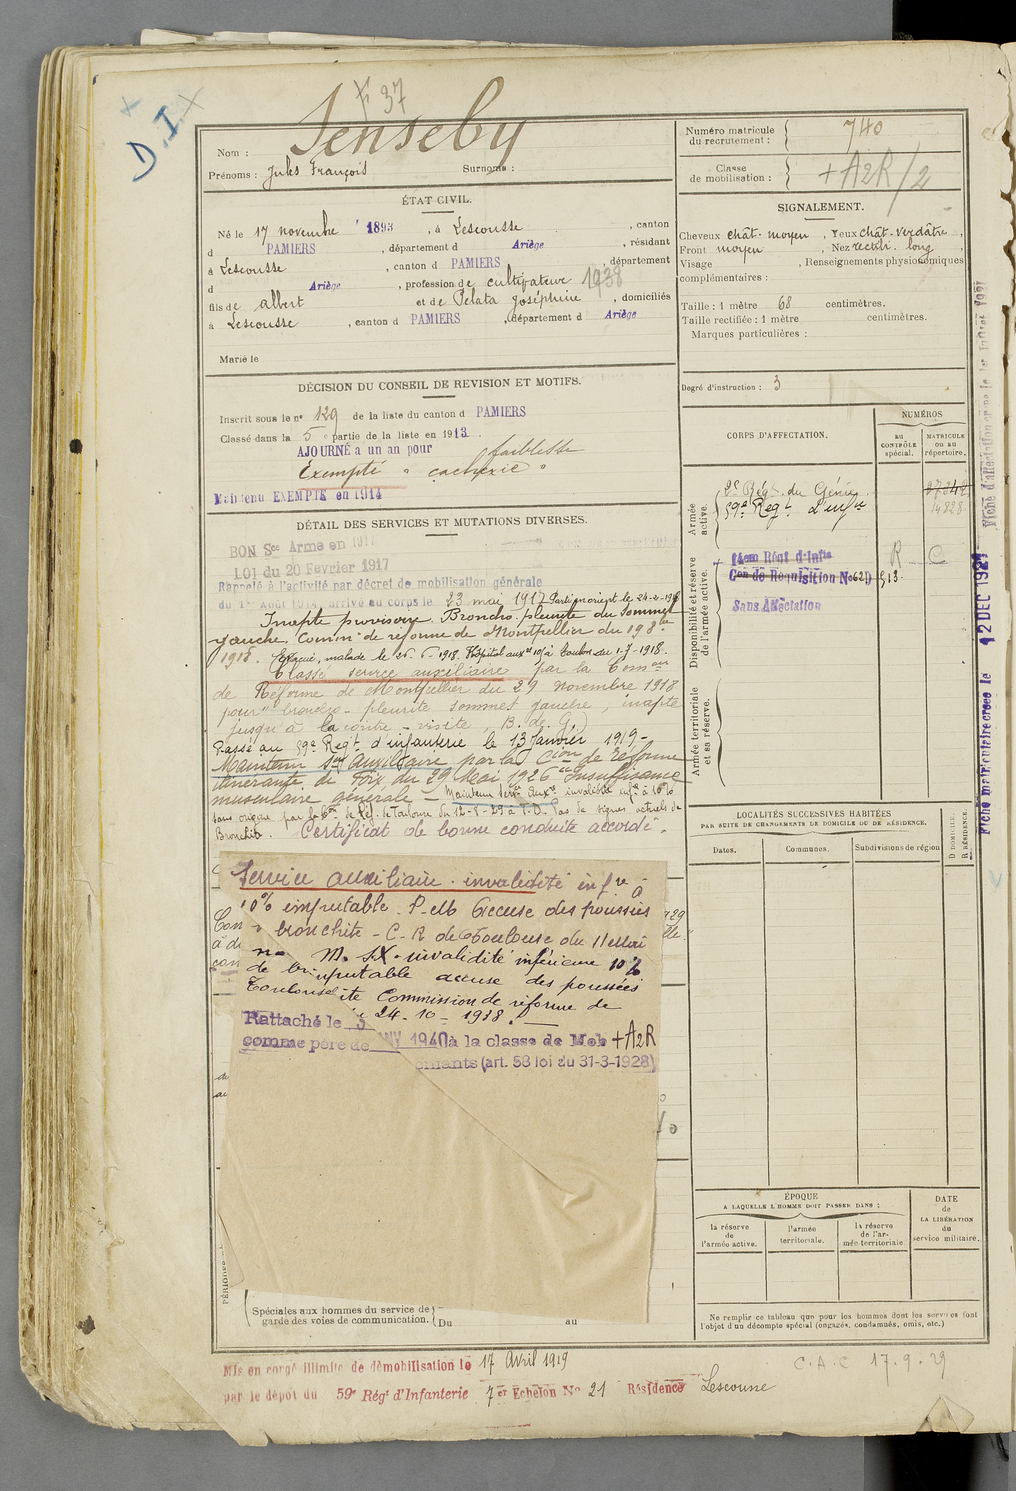 + D.I. X
X 37
Nom : Senseby
Prénoms : Jules François Surnoms :
ÉTAT CIVIL.
Né le 17 novembre 1893, à Lescousse, canton
d PAMIERS, département d Ariège, résidant
à Lescousse, canton d PAMIERS, département
d Ariège, profession de cultivateur 1938
fils de Albert et de Pelata Joséphine, domiciliés
à Lescousse, canton d PAMIERS, département d Ariège
Marié le
DÉCISION DU CONSEIL DE REVISION ET MOTIFS.
Inscrit sous le n° 129 de la liste du canton d PAMIERS
Classé dans la 5e partie de la liste en 1913.
AJOURNÉ a un an pour faiblesse
Exempté " cachexie "
Maintenu EXEMPTE en 1914
DÉTAIL DES SERVICES ET MUTATIONS DIVERSES.
BON Sce Armé en 1917
LOI du 20 Fevrier 1917
Rappelé à l'activité par décret de mobilisation générale
du 1er Août 1914, arrivé au corps le 23 mai 1917 Parti en orient le 24-2-1918
Inapte provisoire. Broncho pleurite du sommet
gauche. Comon de réforme de Montpellier du 19 8bre
1918. Evacué, malade le 25-6-1918. Hôpital auxre à Toulon du 1-7-1918.
Classé service auxiliaire par la Common
de Réforme de Montpellier du 29 novembre 1918
pour "broncho-pleurite sommet gauche, inapte
jusqu'à la contre-visite, B. de G.
Passé au 59e Regt d'infanterie le 13 Janvier 1919-
Maintenu Sce Auxiliaire par la Cion de réforme
itinérante de Foix du 29 Mai 1926 Insuffisance
musculaire générale - Maintenu Serv. Auxre invalidité infre à 10%
sans origine par la Con de Réf. de Toulouse du 12-5-29 à T.D. Pas de signes actuels de
Bronchite. Certificat de bonne conduite accordé.
Service auxiliaire. invalidité infre à
10% imputable. P-elb Accuse des poussées
bronchite - C. R de Toulouse du 11 Mai
M. SX. invalidité inférieure 10%
imputable accuse des poussées
de
Toulouse
Commission de réforme de
24-10-1938.
Rattaché le 3
comme père de
1940 à la classe de Mob + A2R
(art. 58 loi du 31-3-1928)
Spéciales aux hommes du service de
garde des voies de communication. Du au
Mis en congé illimité de démobilisation le 17 Avril 1919
par le dépôt du 59e Régt d'Infanterie 7er Echelon No 21 Résidence Lescousse
C.A.C 17.9.29
Numéro matricule
du recrutement : 740
Classe
de mobilisation : + A2R/2
SIGNALEMENT.
Cheveux chât-moyen, Yeux chât-verdâtre,
Front moyen, Nez rectil. long,
Visage , Renseignements physionomiques
complémentaires :
Taille : 1 mètre 68 centimètres.
Taille rectifiée : 1 mètre centimètres.
Marques particulières :
Degré d'instruction : 3
CORPS D'AFFECTATION.
NUMÉROS
AU CONTRÔLE spécial.
MATRICULE OU AU répertoire.
Armée active.
2e Régt du Génie
59e Regt d'infie
14828
Disponibilité et réserve de l'armée active.
14eme Régt d'Infie R C
Con de Requisition No 62 D 513
Sans Affectation
Armée territoriale et sa réserve.
LOCALITÉS SUCCESSIVES HABITÉES
PAR SUITE DE CHANGEMENTS DE DOMICILE OU DE RÉSIDENCE.
Dates.
Communes.
Subdivisions de région
D DOMICILE.
R RÉSIDENCE.
ÉPOQUE
A LAQUELLE L'HOMME DOIT PASSER DANS :
la réserve de l'armée active.
l'armée territoriale.
la réserve de l'armée territoriale.
DATE de LA LIBÉRATION du service militaire.
Ne remplir ce tableau que pour les hommes dont les services font
l'objet d'un décompte spécial (engagés, condamnés, omis, etc.)
Fiche matriculaire créée le 12 DEC 1921